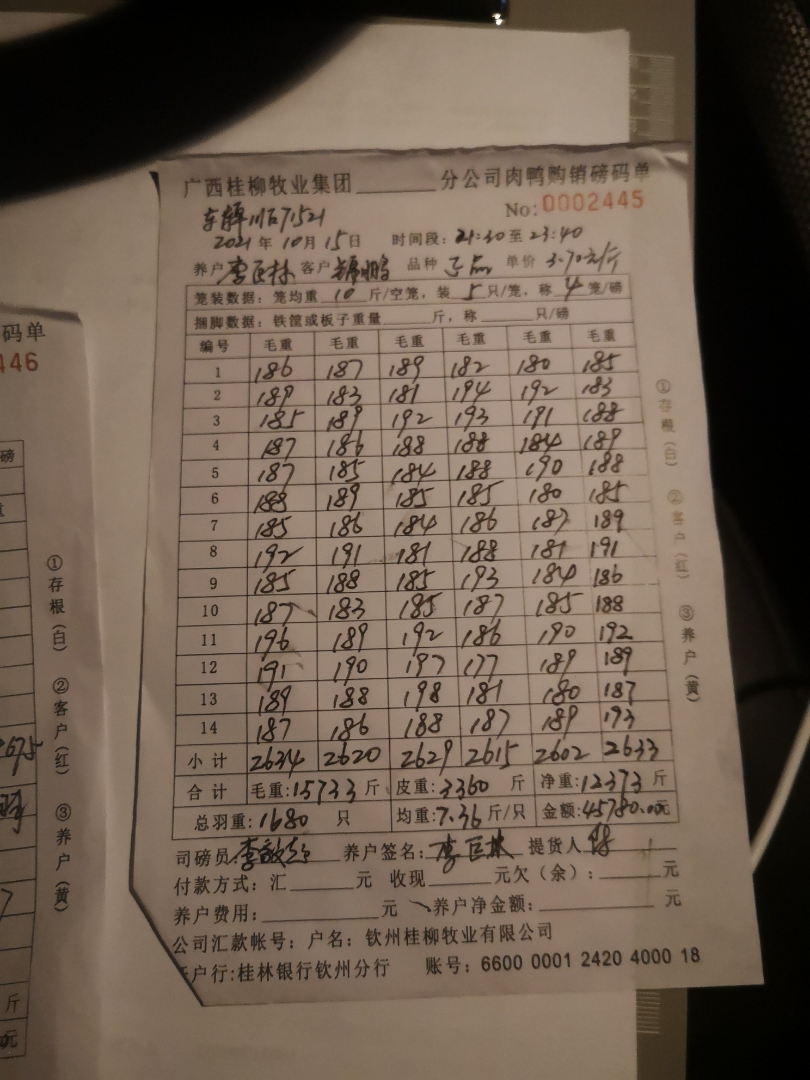 广西桂柳牧业集团________分公司肉鸭购销磅码单
No:0002445
2021年10月15日 时间段:21:30至23:40
养户李巨林客户 鹏 品种 正品 单价 3.70元/斤
笼装数据:笼均重 10 斤/空笼,装 5 只/笼,称 4 笼/磅
捆脚数据:铁筐或板子重量______斤,称______只/磅
编号 毛重 毛重 毛重 毛重 毛重 毛重
1 186 187 189 182 180 185
2 189 183 181 194 192 183
3 185 189 192 193 191 188
4 187 186 188 188 184 189
5 187 185 184 188 190 188
6 188 189 185 185 180 185
7 185 186 184 186 187 189
8 192 191 181 188 181 191
9 185 188 185 193 184 186
10 187 183 185 187 185 188
11 196 189 192 186 190 192
12 191 190 197 177 189 189
13 189 188 198 181 180 187
14 187 186 188 187 189 193
小计 2634 2620 2629 2615 2602 2633
合计 毛重:15733斤 皮重:3360 斤 净重:12373斤
总羽重:1680 只 均重:7.36斤/只 金额:45780.00元
司磅员 李 养户签名:李巨林 提货人
付款方式:汇______元 收现______元欠(余):______元
养户费用:__________元 养户净金额:__________元
公司汇款帐号:户名:钦州桂柳牧业有限公司
开户行:桂林银行钦州分行 账号:6600 0001 2420 4000 18
①存根(白) ②客户(红) ③养户(黄)
码单
446
磅
①存根(白) ②客户(红) ③养户(黄)
斤
元